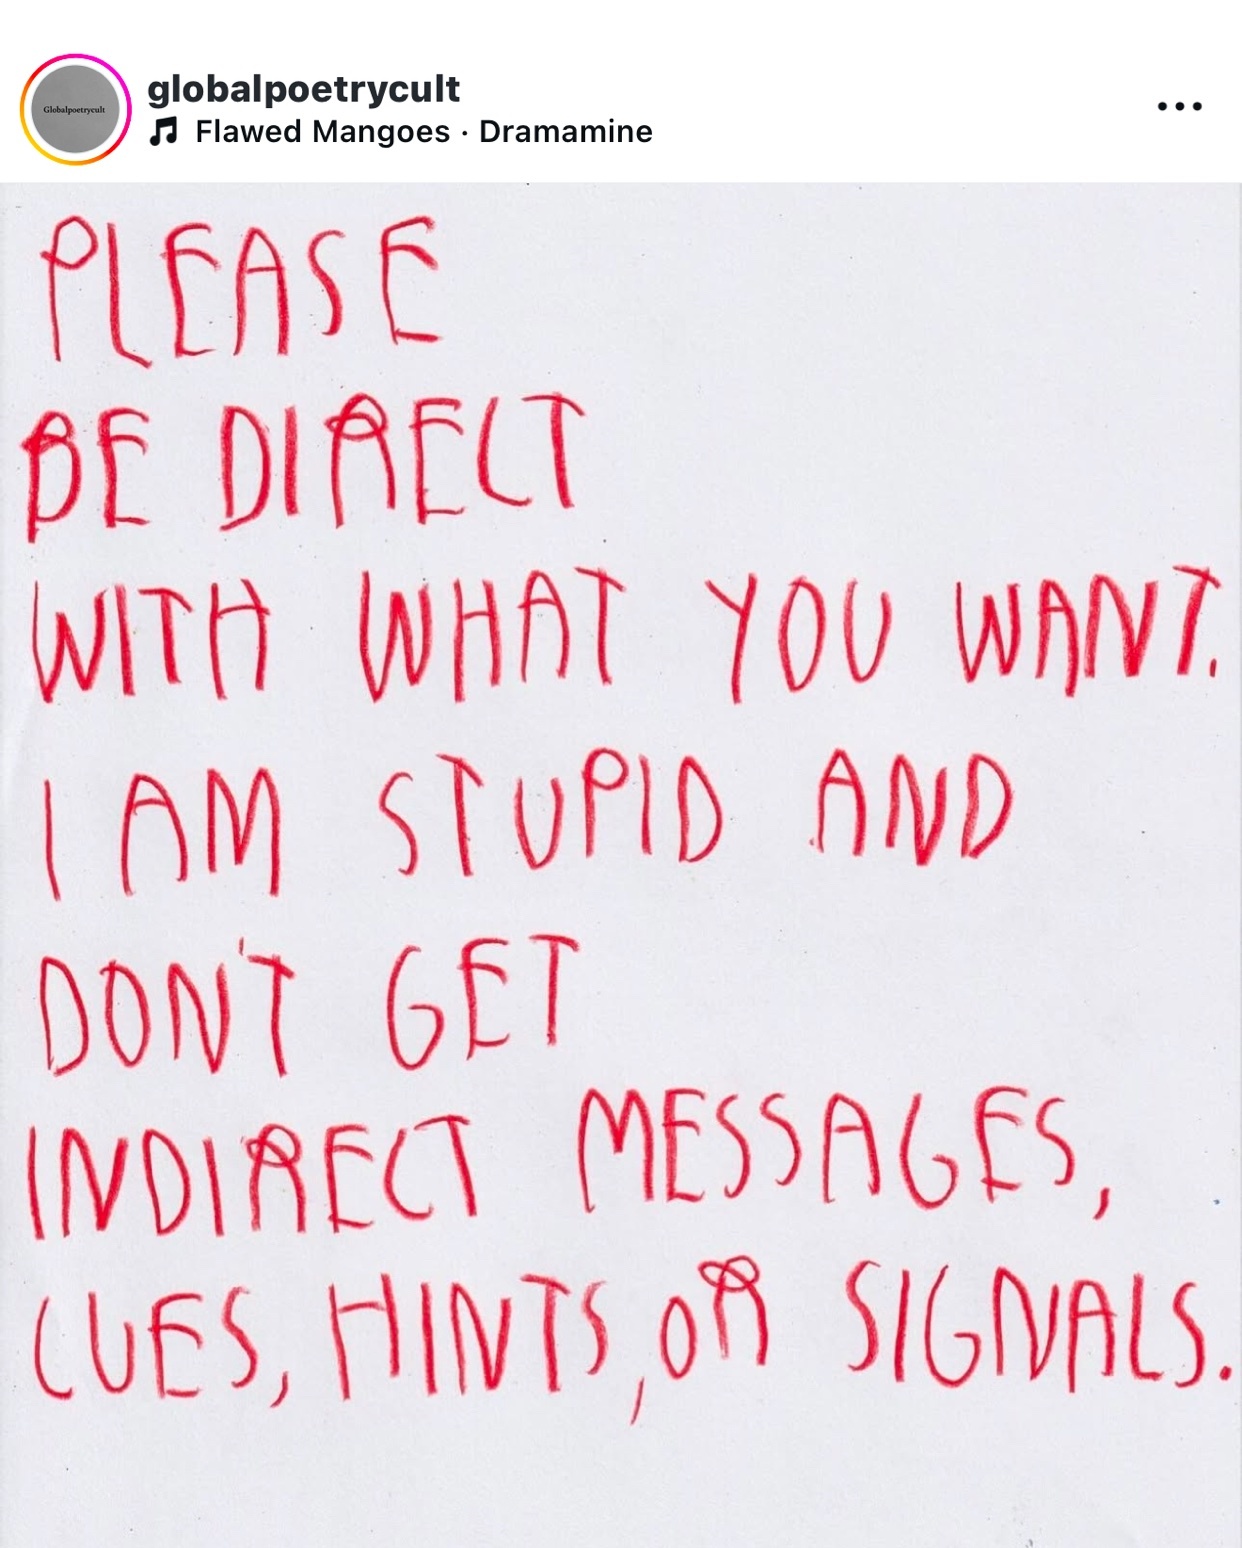 Globalpoetrycult
globalpoetrycult
Flawed Mangoes · Dramamine
PLEASE
BE DIRECT
WITH WHAT YOU WANT.
I AM STUPID AND
DON'T GET
INDIRECT MESSAGES,
CUES, HINTS, OR SIGNALS.